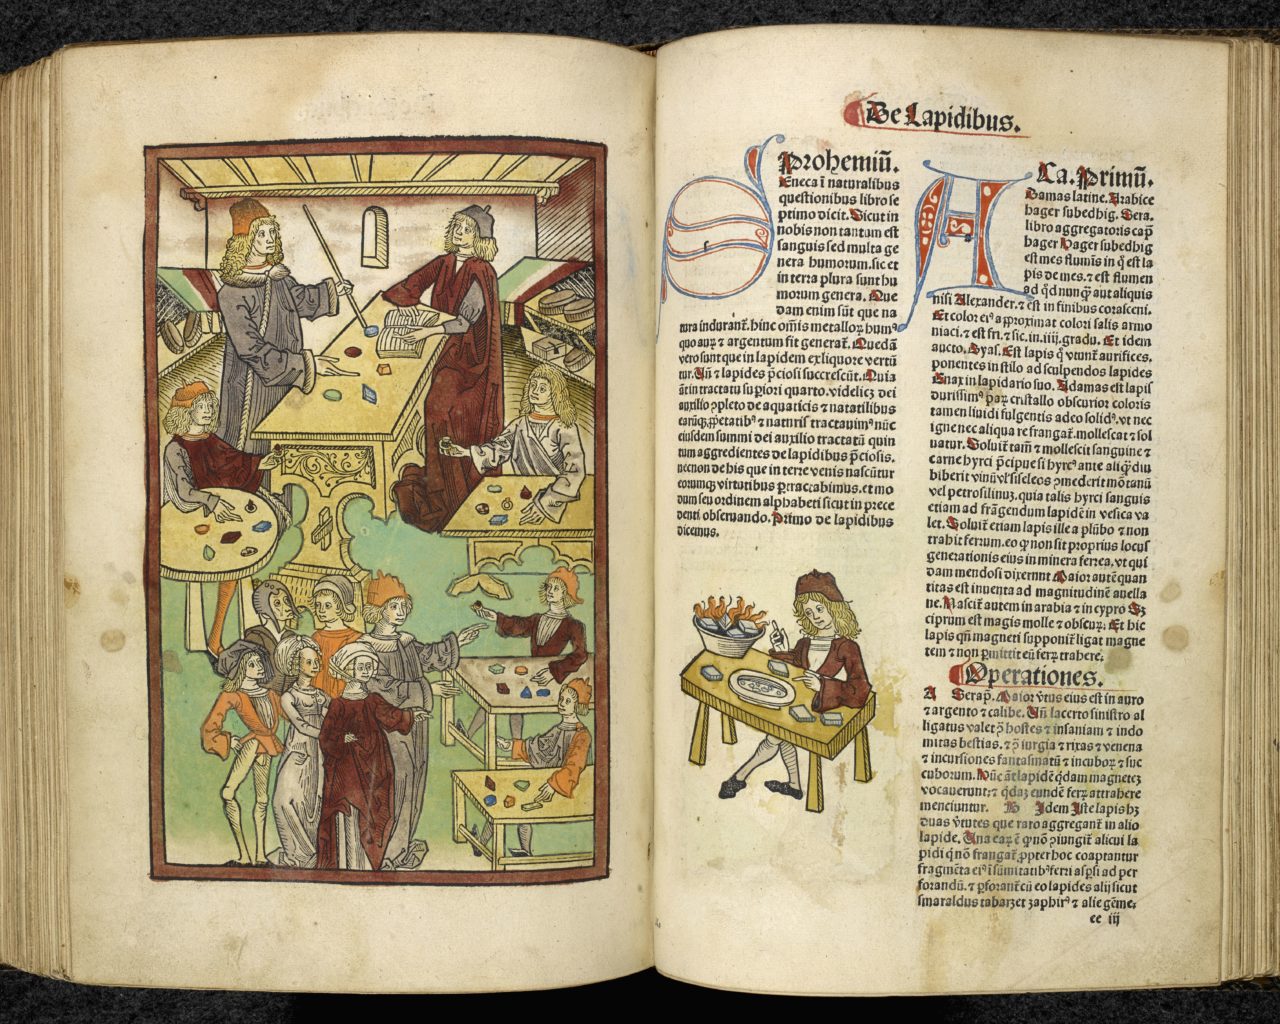 De Lapidibus.
Prohemiū.
SEneca ī naturalibus
questionibus libro se
ptimo dicit. Sicut in
nobis non tantum est
sanguis sed multa ge
nera humorum. sic et
in terra plura sunt hu
morum genera. Que
dam enim sūt que na
tura indurant̄. hinc om̄is metalloꝝ humꝰ
quo auꝝ & argentum fit generat̄. Quedā
vero sunt que in lapidem ex liquore vertū
tur. Uñ & lapides p̄ciosi succrescūt. Quia
āūt in tractatu supiori quarto. videlicꝫ dei
auxilio ꝯpleto de aquaticis & natatilibus
eiusdem summi dei auxilio tractatū quin
tum aggredientes de lapidibus p̄ciosis.
necnon de his que in terre venis nascūtur
eorumqꝫ virtutibus ꝑtractabimus. et mo
dum seu ordinem alphabeti sicut in prece
denti obseruando. Primo de lapidibus
dicemus.
Ca. Primū.
ADamas latine. Arabice
hager subedhig. Sera.
libro aggregatoris cap̄
hager Hager subedhig
est mes flumīs in q̄ est la
pis de mes. & est flumen
ad q̄d nunqꝫ aut aliquis
nisi Alexander. & est in finibus corasceni.
Et color eiꝰ approximat colori salis armo
niaci. & est fri. & sic. in. iiij. gradu. Et idem
auctor. Dyas. Est lapis q̄ vtunt̄ aurifices.
ponentes in stilo ad sculpendos lapides
Enax in lapidario suo. Adamas est lapis
durissimꝰ parꝫ cristallo obscurior coloris
tamen liuidi fulgentis adeo solidꝰ. vt nec
igne nec aliqua re frangat̄. mollescat & sol
uatur. Soluit̄ tam̄ & mollescit sanguine &
carne hyrci p̄cipue si hyrcꝰ ante aliqꝫ diu
biberit vinū vl̓ siseleos ꝯmederit mōtanū
vel petrosilinuꝫ. quia talis hyrci sanguis
etiam ad frāgendum lapidē in vesica va
let. Soluit̄ etiam lapis ille a plūbo & non
trahit ferrum. eo ꝙ non sit proprius locus
generationis eius in minera ferrea. vt qui
dam mendosi dixerunt Maior autē quan
titas est inuenta ad magnitudinē auella
ne. Nascit̄ autem in arabia & in cypro Sꝫ
ciprum est magis molle & obscuꝝ. Et hic
lapis qn̄ magneti supponit̄ ligat magne
tem & non ꝑmittit eū ferꝝ trahere.
Operationes.
A Serap̄. Maior v̄tus eius est in auro
& argento & calibe. Uñ lacerto sinistro al
ligatus valet ꝯ̄ hostes & insaniam & indo
mitas bestias. & ꝯ̄ iurgia & rixas & venena
& incursiones fantasmatū & incuboꝝ & suc
cuborum. Nūc āt lapidē q̄dam magneteꝫ
vocauerunt. & q̄daꝫ eundē ferꝝ attrahere
menciuntur. B Idem Iste lapis hꝫ
duas v̄tutes que raro aggregant̄ in alio
lapide. Una eaꝝ ē ꝙ nō ꝯiungit̄ alicui la
pidi q̄ nō frangat̄. ꝓpter hoc coaptantur
fragmēta eiꝰ ī sūmitatibꝰ ferri aspsi ad per
forandū. & ꝑforant̄ cū eo lapides alij sicut
smaraldus tabarzet zaphirꝰ & alie gēme.
ee iij